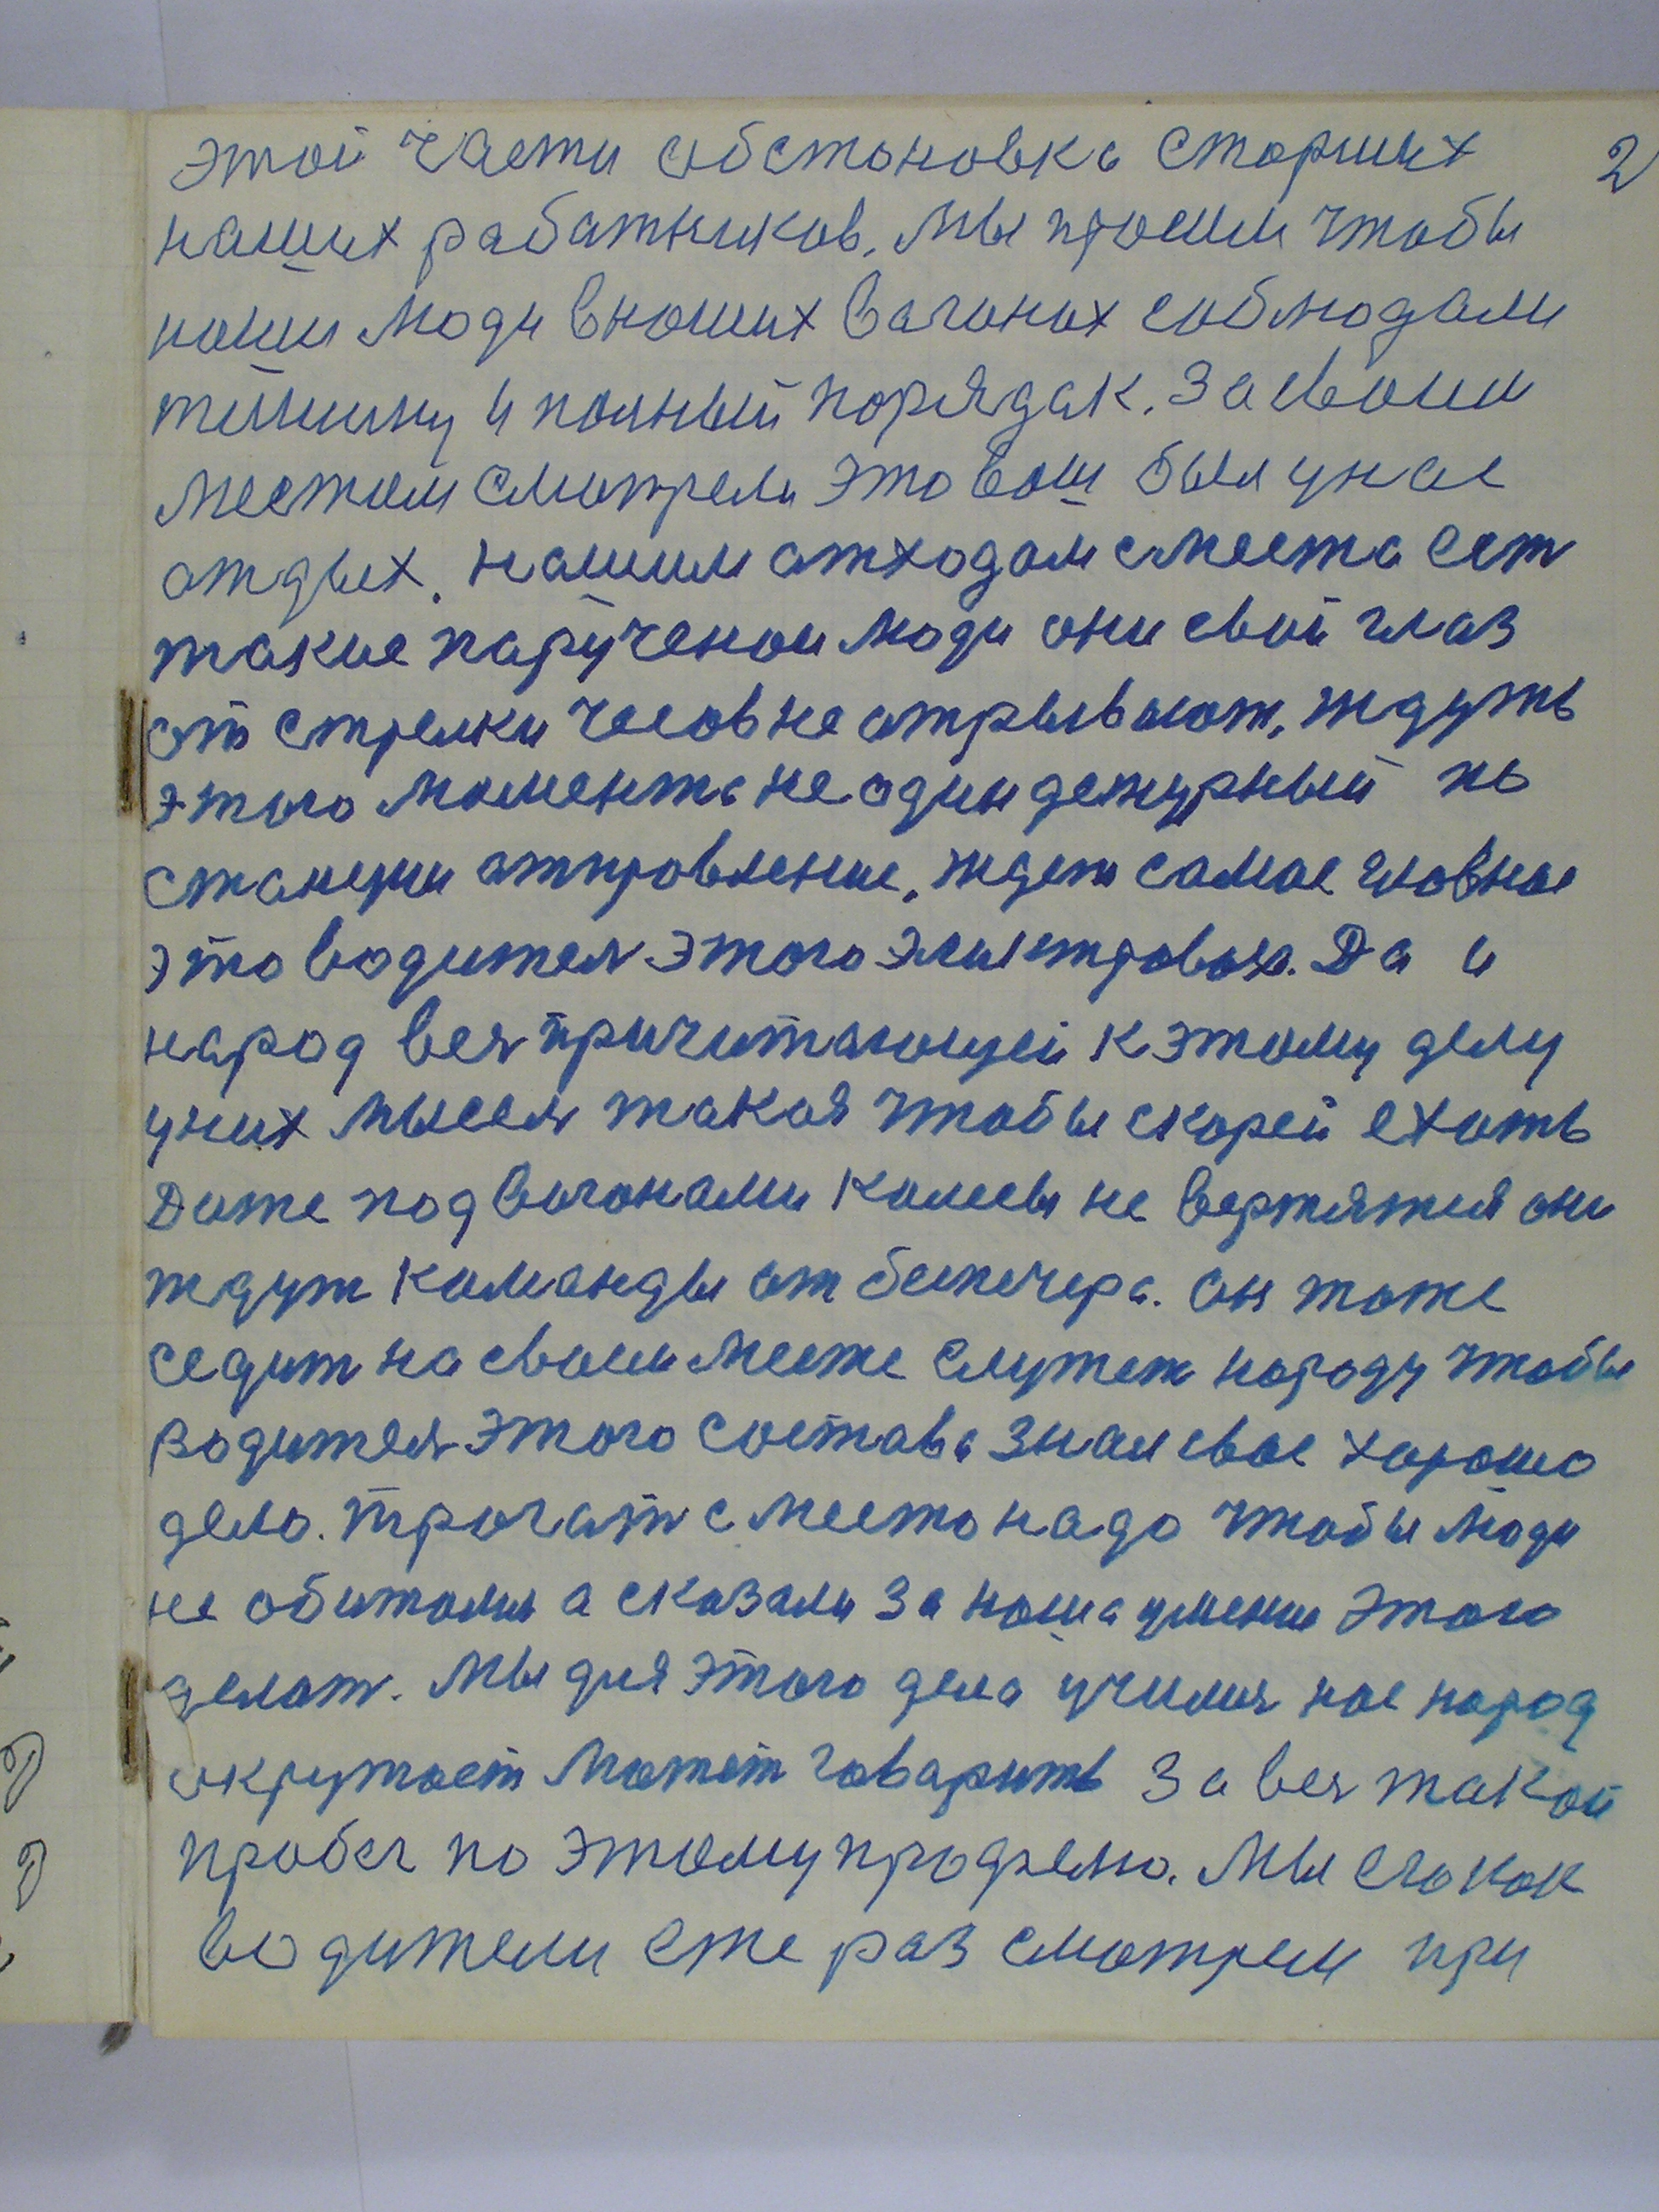 этой части обстановка старших 2
наших работников. Мы просим чтобы
наши люди в наших вагонах соблюдали
тишину и полный порядак. За своим
местом смотрели это ваш был у нас
отдых. Нашим отходом с места ест
такие парученои люди они свой глаз
от стрелки часов не отрывают, ждуть
этого момента не один дежурный по
станции отправление, ждет самое главное
это водител этого электровоза. Да и
народ вся причитающий к этому делу
у них мысля такая чтобы скорей ехать
Даже под вагонами колесы не вертятся они
ждут команды от
седит на своим месте служет народу чтобы
водителя этого состава знал свое хорошо
дело. трогат с место надо чтобы люди
не обижалися а сказали за наша умении этого
делат. Мы для этого дела училися нас народ
окружает может говарить за вся такой
пробег по этому профелю. Мы его как
водители еже раз смотрели при